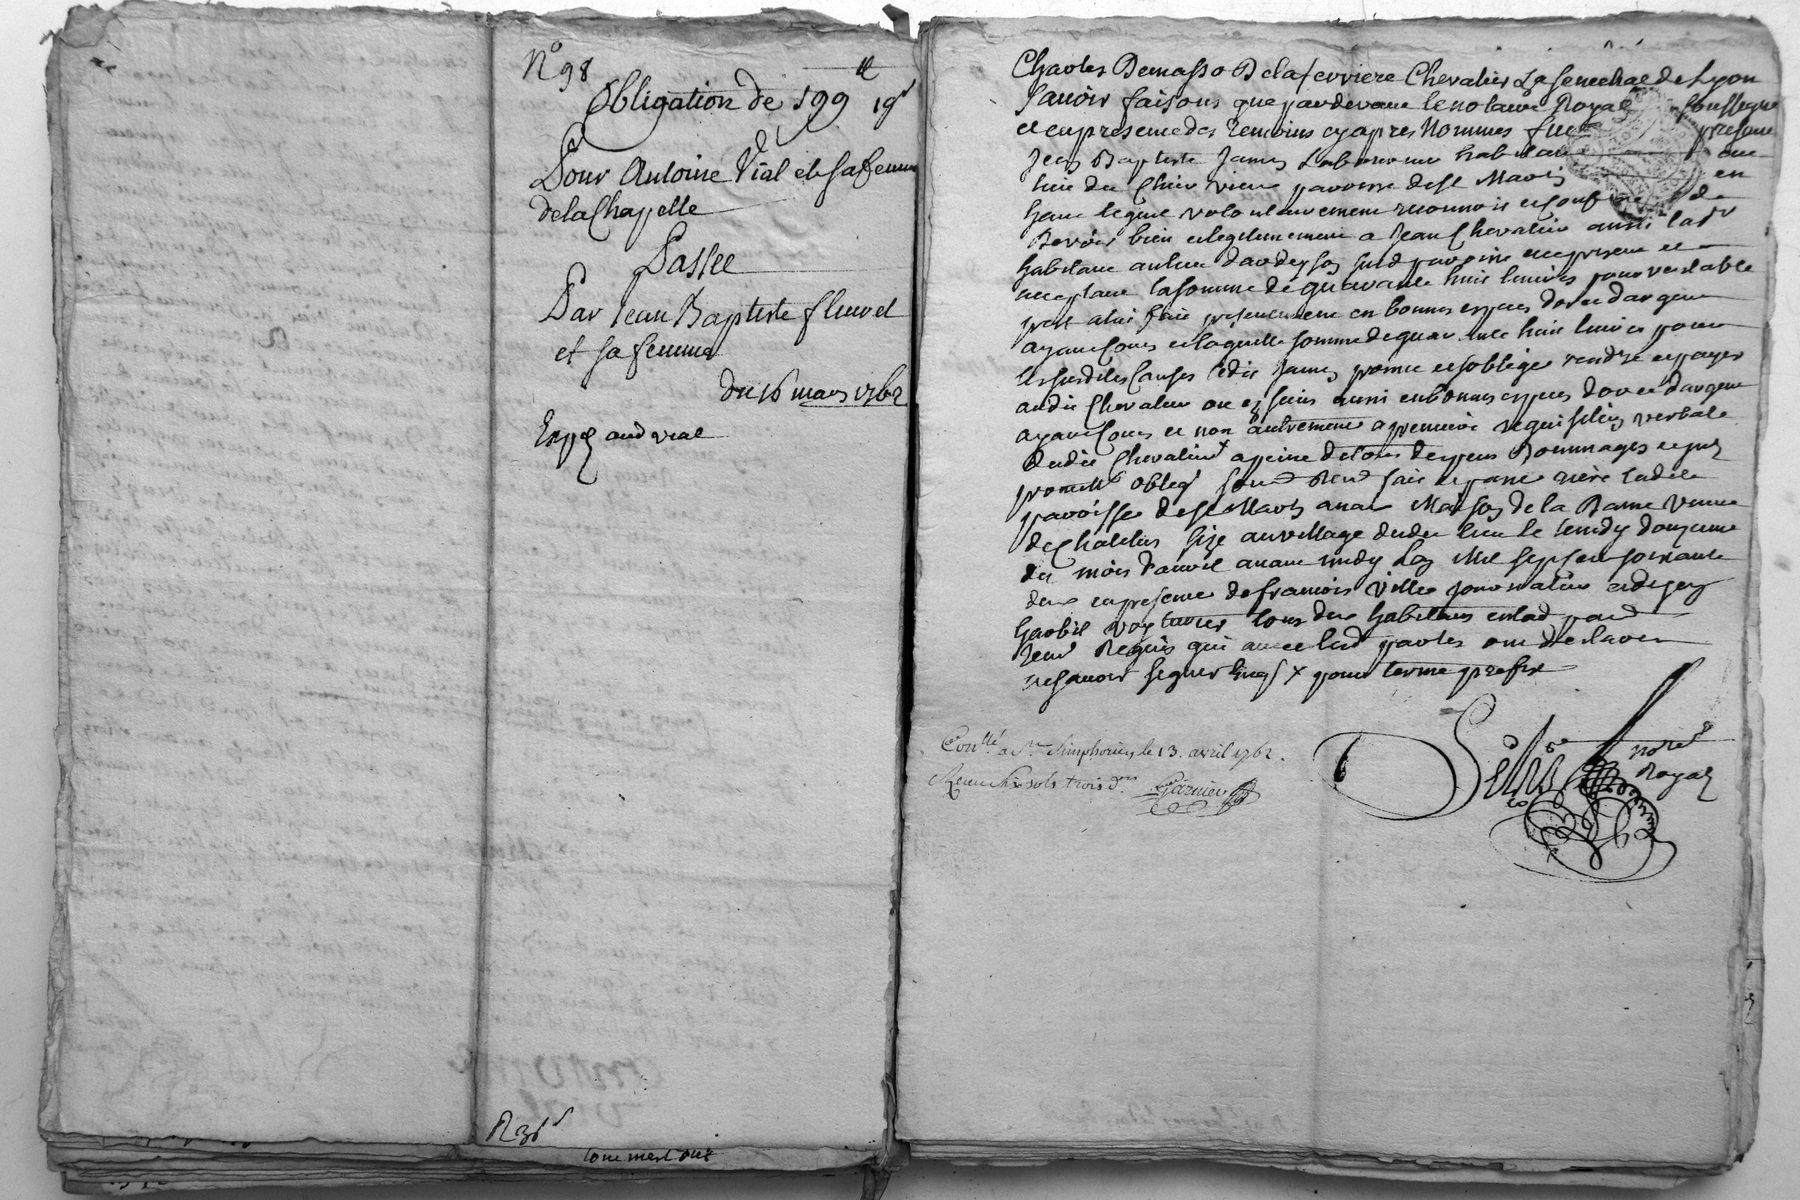 N° 98
Obligation de 199 ll 19 s
Pour Antoine Vial et sa femme
de la Chapelle
Passée
Par Jean Baptiste fleuret
et sa femme
du 16 mars 1762
Exp aud vial
R 36 s
Charles Demasso Delaferriere Chevalier La senechal de Lyon
Savoir faisons que pardevant le notaire Royal soussigne
et en presence des temoins cy apres Nommes fut present
Jean Baptiste James Laboureur habitant au
lieu du parroisse de st Martin en
haut lequel volontairement reconnoit et confesse de
Devoir bien et legitimement a Jean Chevalier aussi lad r
habitant au lieu susd parroisse icy present et
acceptant la somme de quarante huit livres pour veritable
prest a lui fait presentement en bonnes especes dor et dargent
ayant cours et laquelle somme de quarante huit livres pour
les susdites Causes ledit James promet et soblige rendre et payer
audit Chevalier ou es siens aussi en bonnes especes dor et dargent
ayant Cours et non autrement a premiere requisition verbale
dudit Chevalier x a peine de tous depens Dommages et
promett obligt soum Renon fait et passé riere ladite
parroisse de st Martin Maison de la Dame veuve
de Chatelus size au village dudit lieu le lundy douzieme
du mois d'avril avant midy Lan Mil sept cent soixante
deux en presence de francois Ville journalier et
voyturier tous deux habitans en lad par
tem Requis qui avec lesd parties ont declaré
ne savoir signer x pour terme prefix
Con.llé a St. Simphorien le 13. avril 1762.
Reçu six sols trois d.rs Garnier
note
Royal